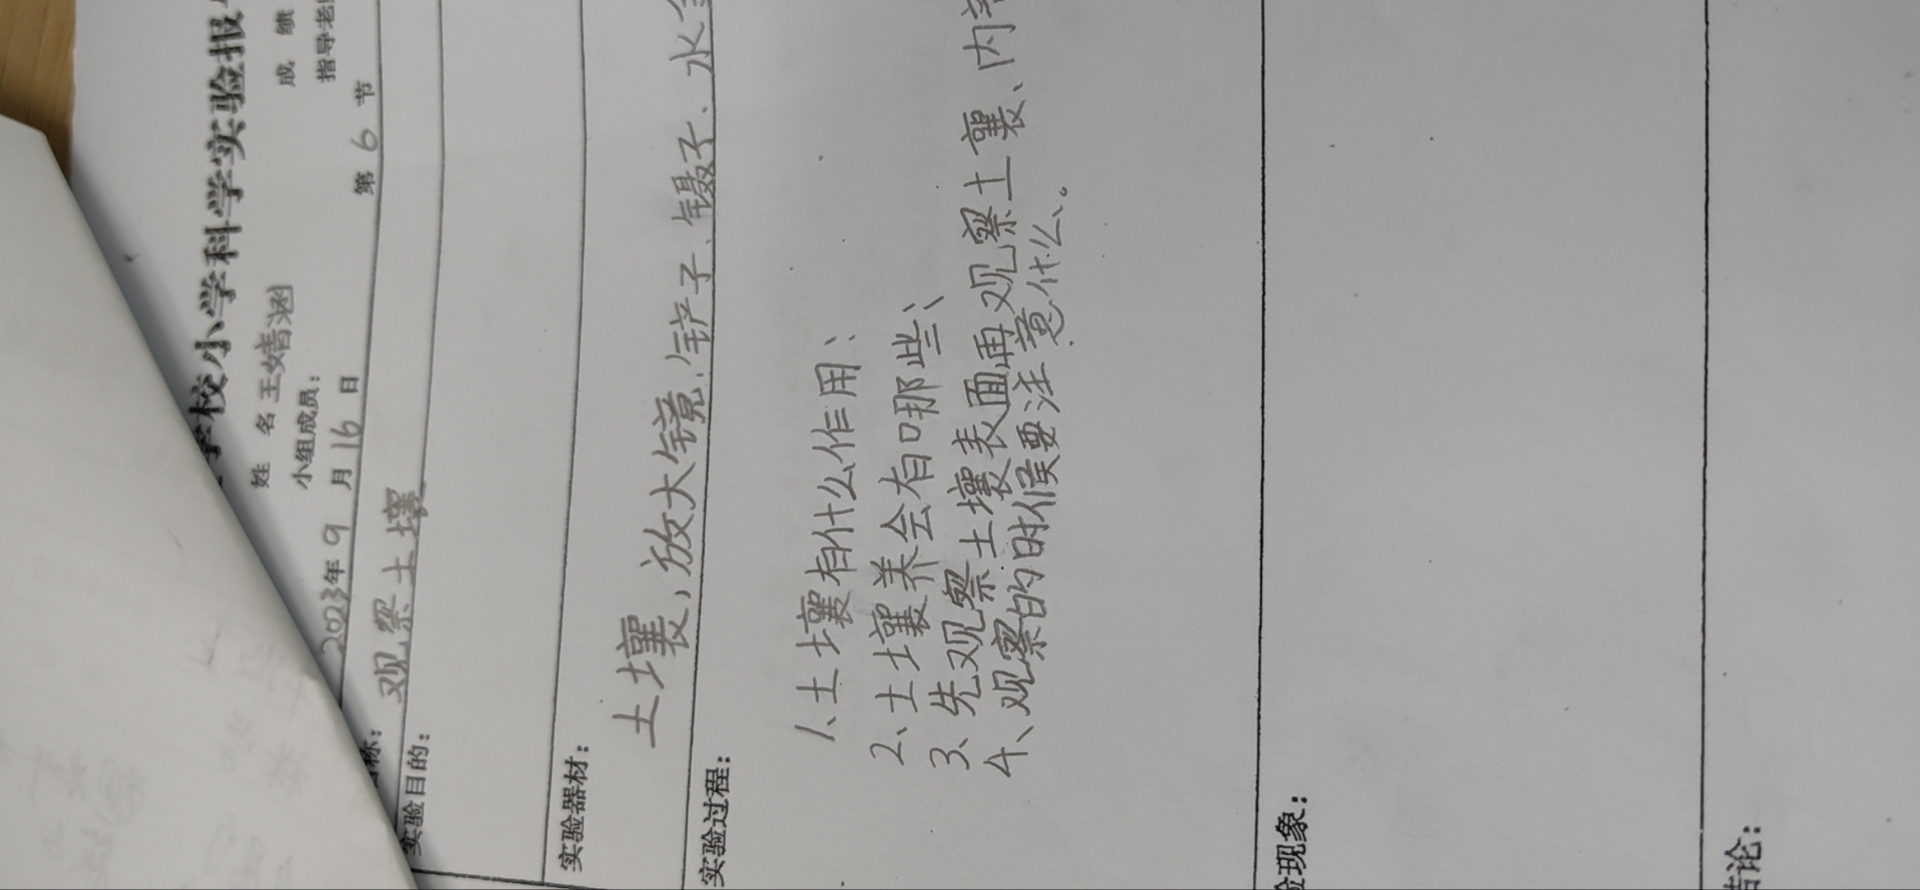 学校小学科学实验报
姓 名 王婧涵 成 绩
小组成员: 指导老
2023年9月16日 第6节
称: 观察土壤
实验目的:
实验器材:
土壤,放大镜、铲子、镊子、水
实验过程:
1、土壤有什么作用;
2、土壤养会有哪些;
3、先观察土壤表面再观察土壤、内
4、观察的时候要注意什么。
验现象:
结论: